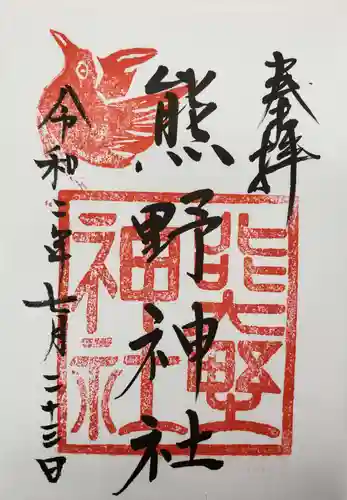 奉拝
熊野神社
熊野神社
令和二年七月二十三日